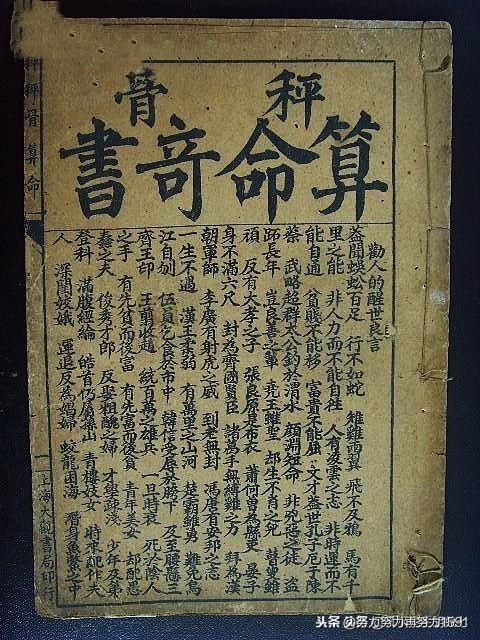 秤骨
算命竒書
勸人的醒世良言
盖聞蜈蚣百足 行不如蛇 雄雞両翼 飛不及鴉 馬有千
里之能 非人力而不能自往 人有凌雲之志 非時運而不
能自通 貧賤不能移 富貴不能屈 文才盖世孔子厄于陳
蔡 武略超群太公釣於渭水 顔淵短命 非兇惡之徒 盗
跖長年 豈良善之輩 堯王雖聖 却生不肖之兒 瞽瞍雖
頑 反有大孝之子 張良原是布衣 蕭何曾為縣吏 晏子
身不滿六尺 封為齊國賢臣 諸葛手無縛雞之力 拜為漢
朝軍師 李廣有射虎之威 到老無封 馮唐有安邦之志
一生不遇 漢王柔弱 有萬里之山河 楚霸雖勇 難免烏
江自刎 伍員乞食於市中 韓信受辱於胯下 及至腰懸三
齊王印 王翦收趙 統百萬之雄兵 一旦時衰 死於陰人
之手 有先貧而後富 有先富而後貧 青年美女 却配愚
蠢之夫 俊秀才郎 反娶粗醜之婦 才學疎淺 少年及第
登科 滿腹經綸 皓首仍居深山 青樓妓女 時來配作夫
人 深閨姣娥 運退反為娼婦 蛟龍困海 潛身魚鱉之中
秤骨算命
上海大觀書局印行
头条 @努力努力再努力1591